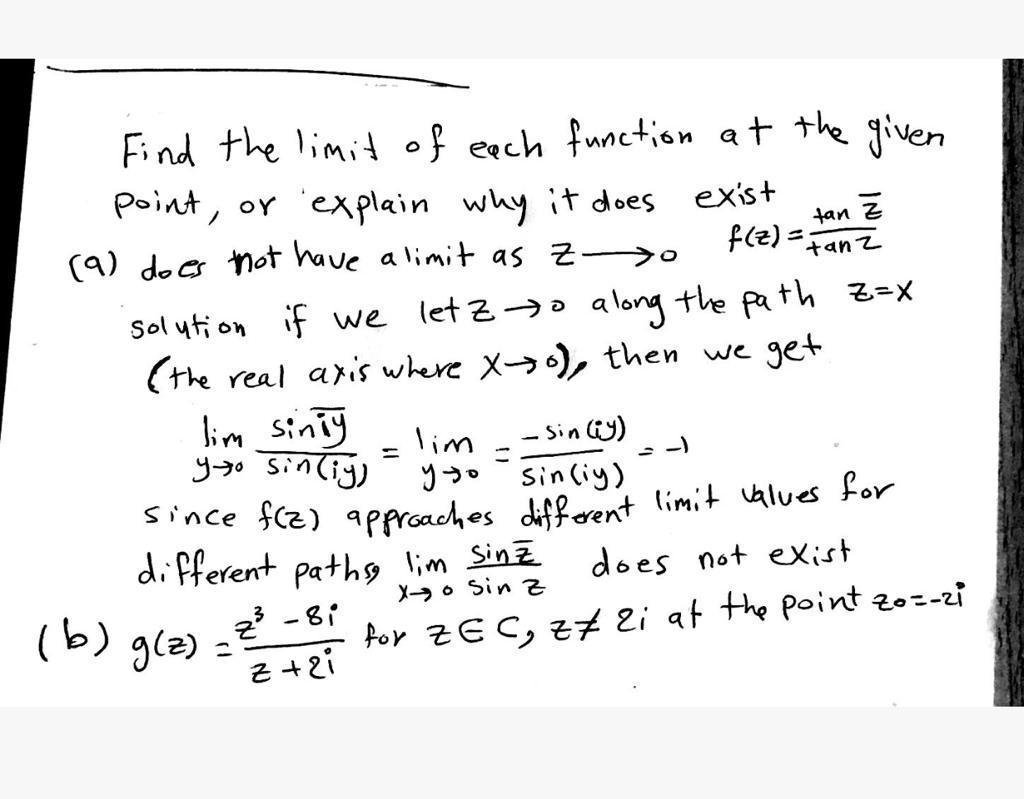 Find the limit of each function at the given
point, or explain why it does exist
(a) does not have a limit as z → 0 f(z) = tan z̅ / tan z
solution if we let z → 0 along the path z=x
(the real axis where x→0), then we get
lim y→0 sin i̅y̅ / sin(iy) = lim y→0 = -sin(iy) / sin(iy) = -1
since f(z) approaches different limit values for
different paths, lim x→0 sin z̅ / sin z does not exist
(b) g(z) = z³ - 8i / z + 2i for z ∈ C, z ≠ 2i at the point z0 = -2i